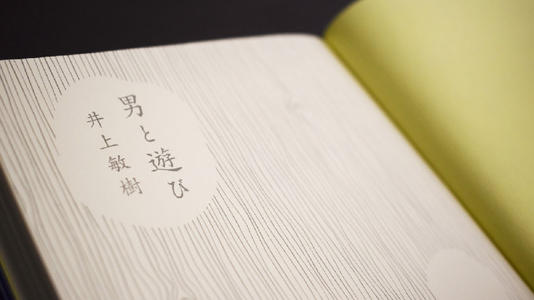 男と遊び
井上敏樹